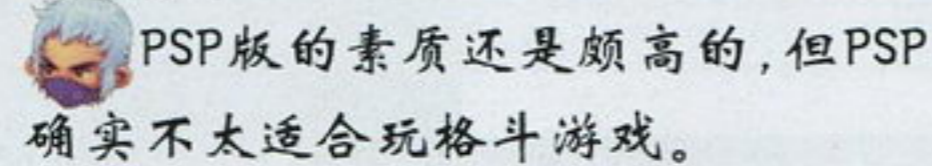 PSP版的素质还是颇高的,但PSP
确实不太适合玩格斗游戏。